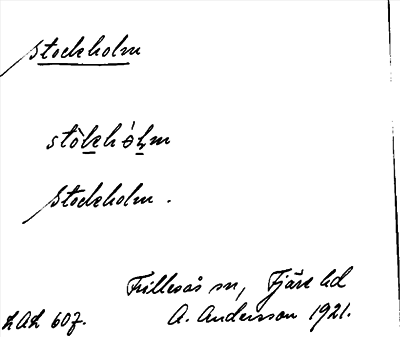 Stockholm
stòkhòlm
Stockholm.
Frillesås sn, Fjäre hd
LAL 607. A. Andersson 1921.